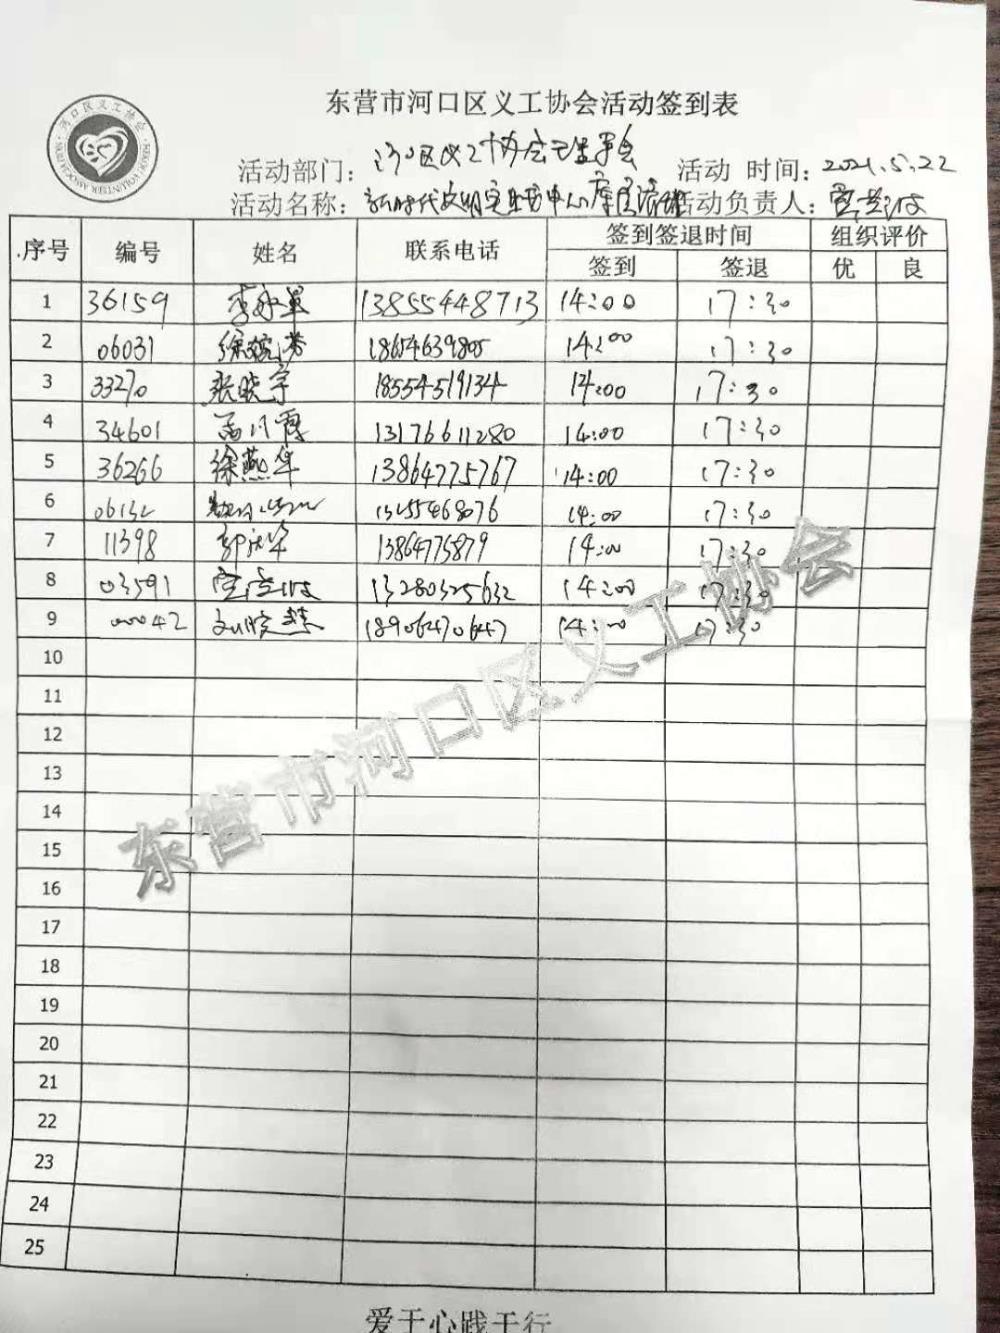 东营市河口区义工协会活动签到表
河口区义工协会
HEKOU VOLUNTEER ASSOCIATION
活动部门：河口区义工协会理事会 活动 时间：2021.5.22
活动名称：新时代文明实践中心 活动负责人：
序号 编号 姓名 联系电话 签到签退时间 组织评价
签到 签退 优 良
1 36159 13855448713 14:00 17:30
2 06031 徐婉芳 18654639805 14:00 17:30
3 33270 张晓宇 18554519134 14:00 17:30
4 34601 13176611280 14:00 17:30
5 36266 徐燕华 13864775767 14:00 17:30
6 06132 14:00 17:30
7 11398 13864775879 14:00 17:30
8 03591 13280325632 14:00 17:30
9 00042 刘晓慧 18906470647 14:00 17:30
10
11
12
13
14
15
16
17
18
19
20
21
22
23
24
25
东营市河口区义工协会
爱于心践于行